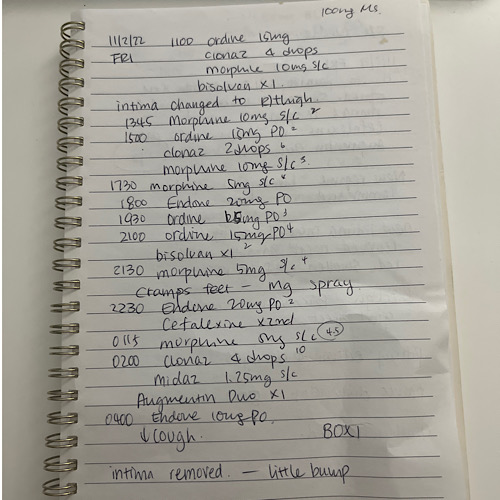 100mg Ms
11/2/22 1100 ordine 15mg
FRI clonaz 4 drops
morphine 10mg s/c
bisolvon x1.
intima changed to R)thigh.
1345 Morphine 10mg s/c 2
1500 ordine 15mg PO 2
clonaz 2drops 6
morphine 10mg s/c 3
1730 morphine 5mg s/c 4
1800 Endone 20mg PO
1930 ordine 15mg PO 3
2100 ordine 15mg PO 4
bisolvon x1 2
2130 morphine 5mg s/c 4
Cramps feet - Mg spray
2230 Endone 20mg PO 2
Cefalexine x2nd
0115 morphine 5mg s/c 45
0200 Clonaz 4 drops 10
Midaz 1.25mg s/c
Augmentin Duo x1
0400 Endone 10mg PO.
↓Cough. BOX1
intima removed. - little bump